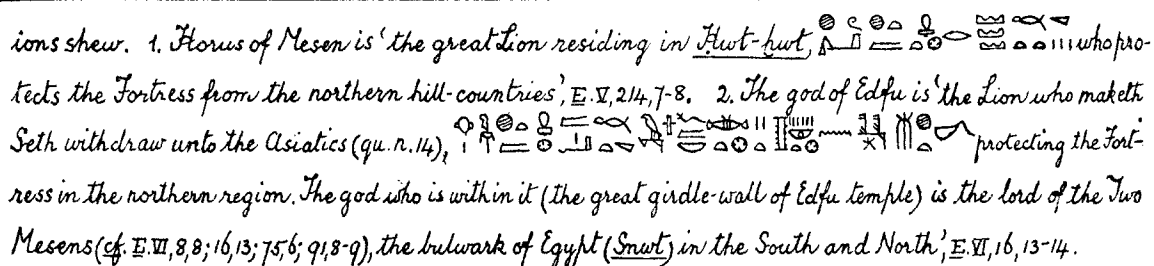 ions shew. 1. Horus of Mesen is 'the great Lion residing in Ḥwt-ḫwt, who pro-
tects the Fortress from the northern hill-countries', E.V,214,7-8. 2. The god of Edfu is 'the Lion who maketh
Seth withdraw unto the Asiatics (qu.n.14), protecting the Fort-
ress in the northern region. The god who is within it (the great girdle-wall of Edfu temple) is the lord of the Two
Mesens (cf. E.VI,8,8; 16,13; 75,6; 91,8-9), the bulwark of Egypt (Snwt) in the South and North', E.VI,16,13-14.